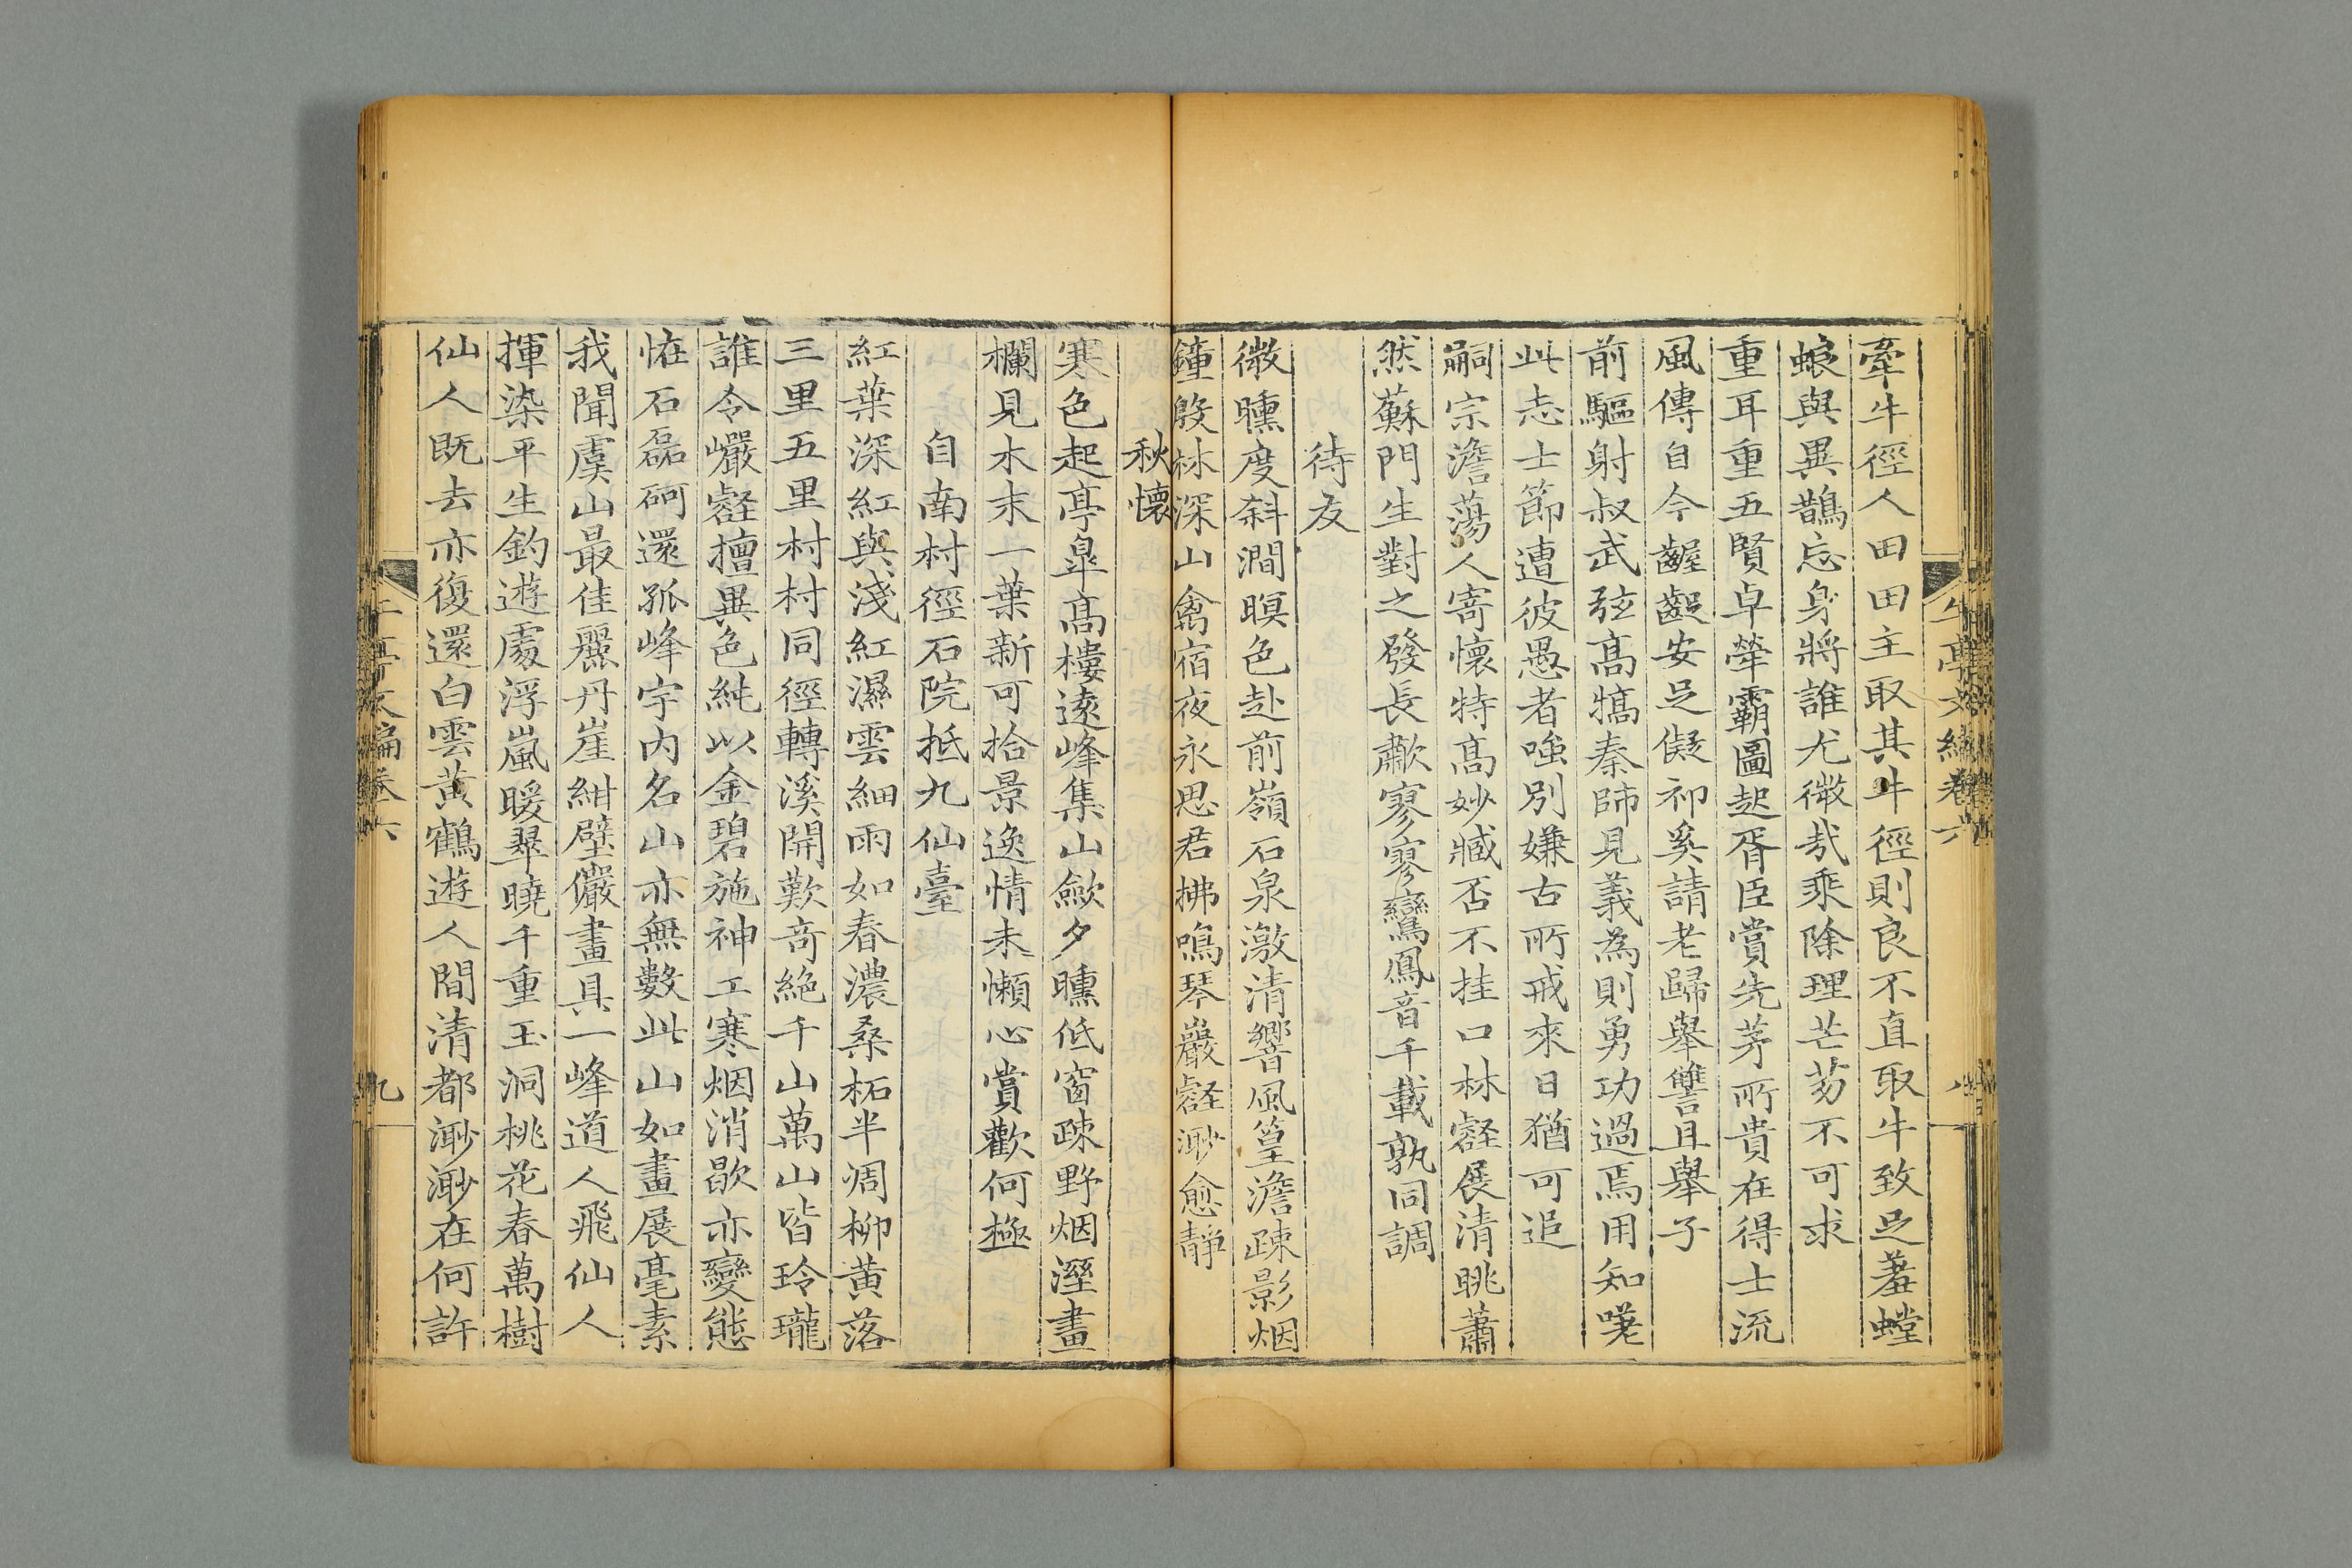 牽牛徑人田田主取其牛徑則良不直取牛致足羞螳
蜋與異鵲忘身將誰尤微哉乘除理芒芴不可求
重耳重五賢卓犖霸圖起胥臣賞先茅所貴在得士流
風傳自今齷齪安足儗祁奚請老歸舉讐且舉子
前驅射叔武弦高犒秦師見義為則勇功過焉用知嘆
此志士節遭彼愚者嗤別嫌古所戒來日猶可追
嗣宗澹蕩人寄懷特高妙臧否不挂口林壑展清眺蕭
然蘇門生對之發長歗寥寥鸞鳳音千載孰同調
待友
微曛度斜澗暝色赴前嶺石泉激清響風篁澹疎影烟
鐘殷林深山禽宿夜永思君拂鳴琴巖壑渺愈靜
秋懷
寒色起亭皐高樓遠峰集山歛夕曛低窗疎野烟溼畫
欄見木末一葉新可拾景逸情未懶心賞歡何極
自南村徑石院抵九仙臺
紅葉深紅與淺紅濕雲細雨如春濃桑柘半凋柳黄落
三里五里村村同徑轉溪開歎奇絶千山萬山皆玲瓏
誰令巗壑擅異色純以金碧施神工寒烟消歇亦變態
恠石磊砢還孤峰宇内名山亦無數此山如畫展毫素
我聞虞山最佳麗丹崖紺壁儼畫具一峰道人飛仙人
揮染平生釣遊處浮嵐暖翠曉千重玉洞桃花春萬樹
仙人既去亦復還白雲黃鶴遊人間清都渺渺在何許
午亭文編卷六
八
午亭文編卷六
九